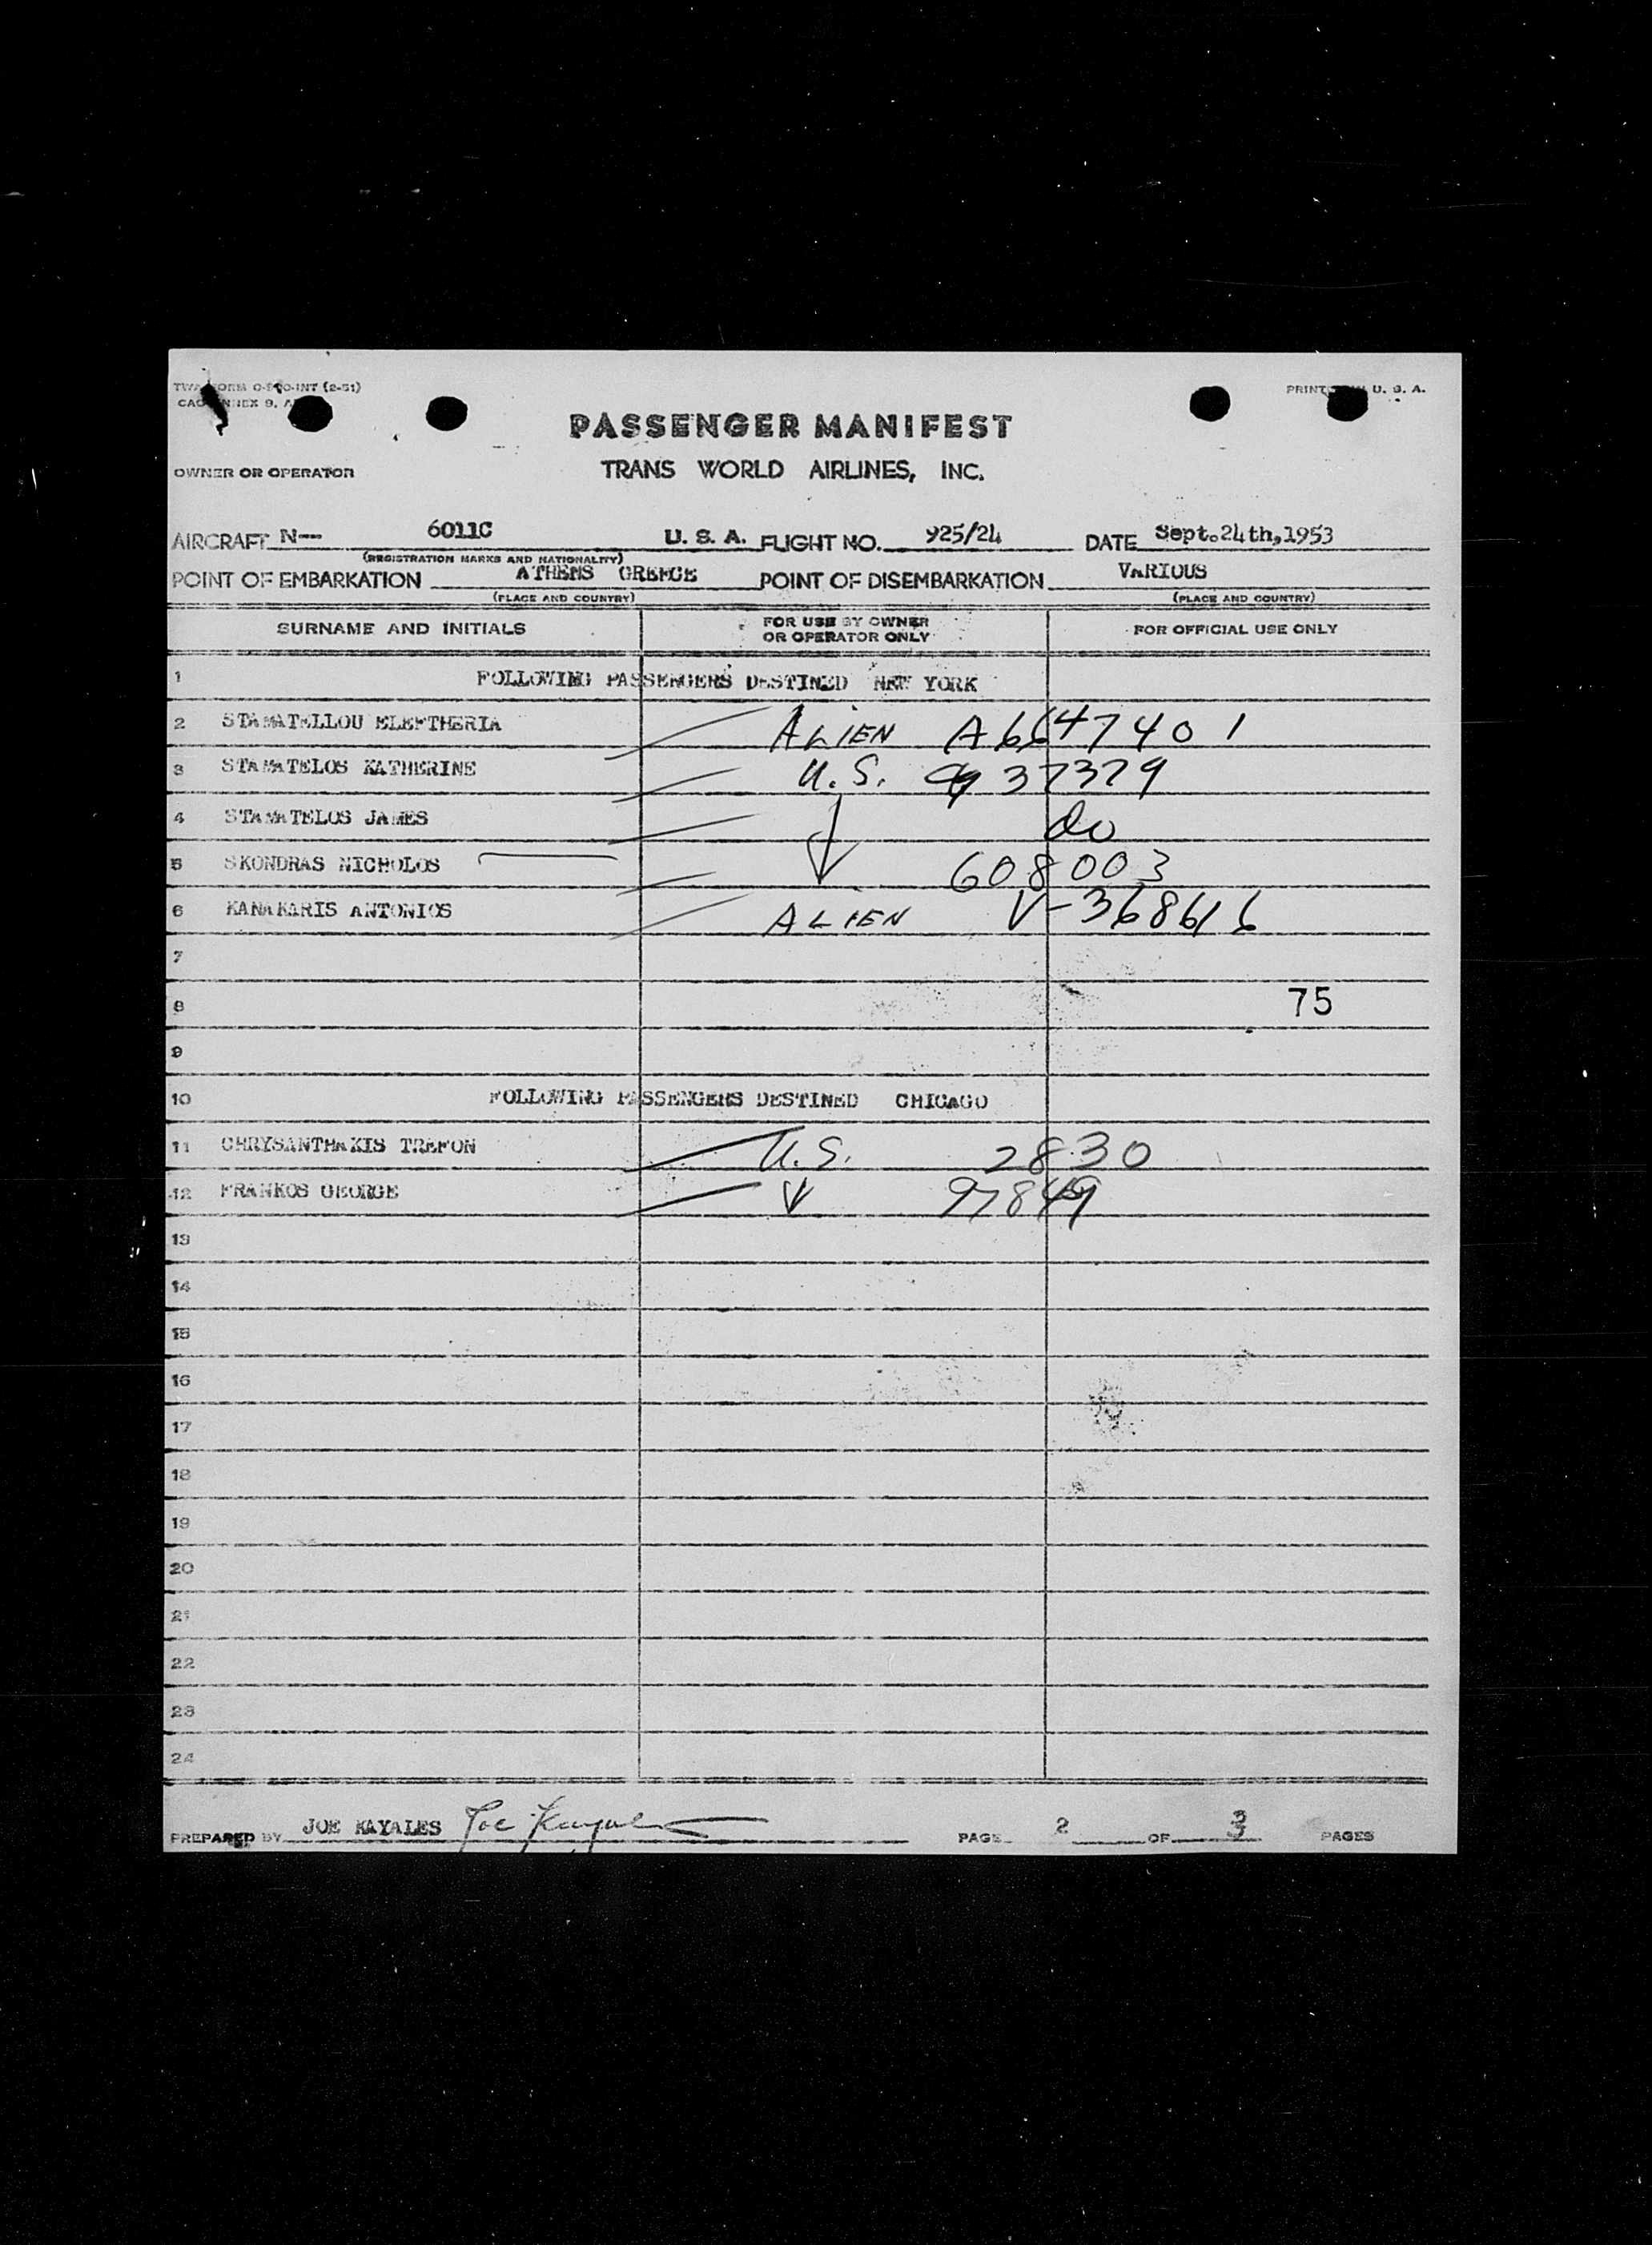 PASSENGER MANIFEST
OWNER OR OPERATOR TRANS WORLD AIRLINES, INC.
AIRCRAFT N-- 6011C U. S. A. FLIGHT NO. 925/24 DATE Sept.24th,1953
(REGISTRATION MARKS AND NATIONALITY)
POINT OF EMBARKATION ATHENS GREECE POINT OF DISEMBARKATION VARIOUS
(PLACE AND COUNTRY) (PLACE AND COUNTRY)
SURNAME AND INITIALS FOR USE BY OWNER OR OPERATOR ONLY FOR OFFICIAL USE ONLY
1 FOLLOWING PASSENGERS DESTINED NEW YORK
2 STAMATELLOU ELEFTHERIA ALIEN A6647401
3 STAMATELOS KATHERINE U.S. 37379
4 STAMATELOS JAMES do
5 SKONDRAS NICHOLOS 608003
6 KANAKARIS ANTONIOS ALIEN V-368616
7
8 75
9
10 FOLLOWING PASSENGERS DESTINED CHICAGO
11 CHRYSANTHAKIS TREFON U.S. 2830
12 FRANKOS GEORGE 97849
13
14
15
16
17
18
19
20
21
22
23
24
PREPARED BY JOE KAYALES Joe Kayales PAGE 2 OF 3 PAGES